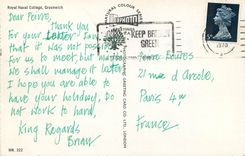 Royal Naval College, Greenwich
Dear Pierre,
Thank you
for your letter. I am
that it was not possible
for us to meet, but maybe
we shall manage it later
I hope you are able to
have your holiday, Do
not work to hard,
King Regards
Brian
NATURAL COLOUR SERIES
KEEP BRITAIN
GREEN
1970
Pierre
21 rue d'Arcole,
Paris 4
France
MR. 322